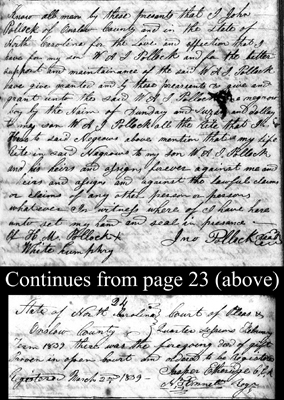 Know all men by these presents that I John
Pollock of Onslow County and in the State of
North Carolina for the love and affection that I
have for my son W A J Pollock and for the better
support and maintainance of the said W A J Pollock
have give manted and by these presents do give and
grant unto the said W A J Pollock a negrow
boy by the Naim of Dunday and and
to my son W A J Pollock all the tite that I
have to said Negrows above mention that is my life
tite in said Negrows to my son W A J Pollock
and his heirs and asigns forever against me and
eirs and asigns and against the lawful claims
or claims of any other person or persons
whatever In witness where of I have here
unto set my han and seal in presence
of H. M. Pollock x
White humphry Jno Pollock seal
Continues from page 23 (above)
24
State of North Carolina Court of Pleas &
Onslow County Quarter sessions February
Term 1839 there was the foregoing deed of gift
proven in open court and ordered to be registered
Registered March 1839 Jasper Etheridge